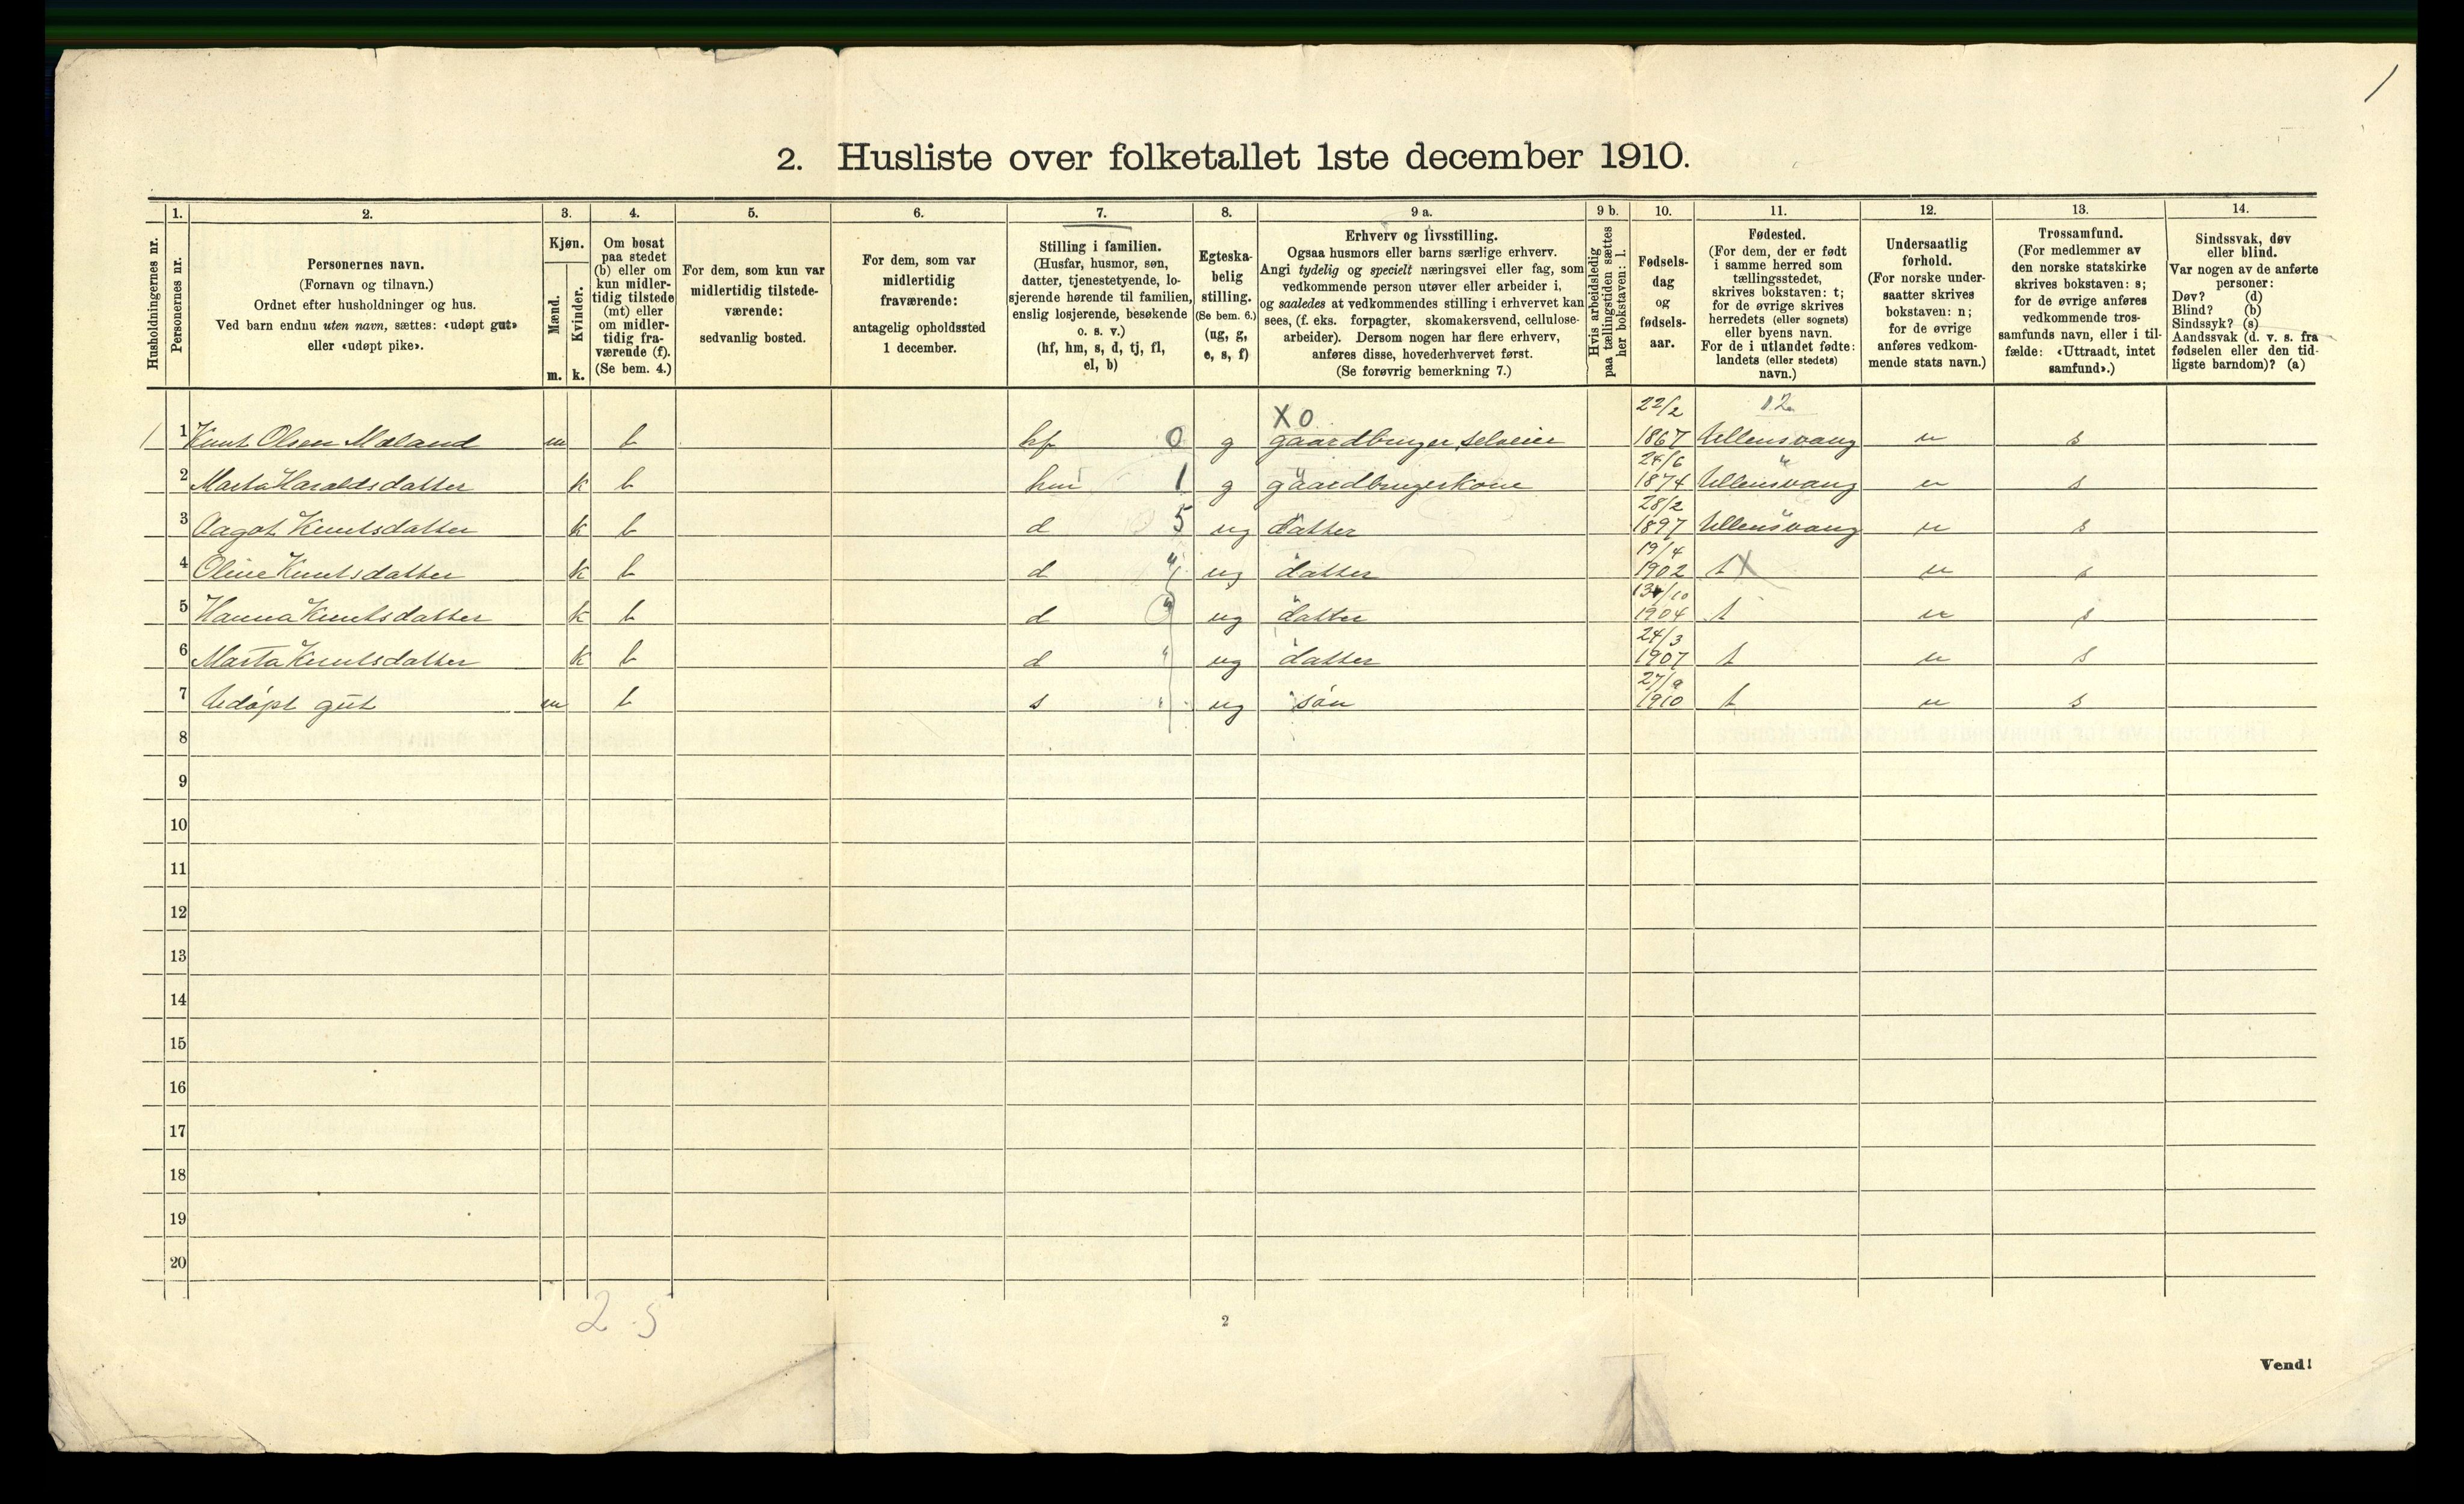 2. Husliste over folketallet 1ste december 1910.
Husholdningernes nr.
1. Personernes nr.
2. Personernes navn.
(Fornavn og tilnavn.)
Ordnet efter husholdninger og hus.
Ved barn endnu uten navn, sættes: «udøpt gut»
eller «udøpt pike».
3. Kjøn.
Mænd. m.
Kvinder. k.
4. Om bosat
paa stedet
(b) eller om
kun midler-
tidig tilstede
(mt) eller
om midler-
tidig fra-
værende (f).
(Se bem. 4.)
5. For dem, som kun var
midlertidig tilstede-
værende:
sedvanlig bosted.
6. For dem, som var
midlertidig
fraværende:
antagelig opholdssted
1 december.
7. Stilling i familien.
(Husfar, husmor, søn,
datter, tjenestetyende, lo-
sjerende hørende til familien,
enslig losjerende, besøkende
o. s. v.)
(hf, hm, s, d, tj, fl,
el, b)
8. Egteska-
belig
stilling.
(Se bem. 6.)
(ug, g,
e, s, f)
9 a. Erhverv og livsstilling.
Ogsaa husmors eller barns særlige erhverv.
Angi tydelig og specielt næringsvei eller fag, som
vedkommende person utøver eller arbeider i,
og saaledes at vedkommendes stilling i erhvervet kan
sees, (f. eks. forpagter, skomakersvend, cellulose-
arbeider). Dersom nogen har flere erhverv,
anføres disse, hovederhvervet først.
(Se forøvrig bemerkning 7.)
9 b. Hvis arbeidsledig
paa tællingstiden sættes
her bokstaven: l.
10. Fødsels-
dag
og
fødsels-
aar.
11. Fødested.
(For dem, der er født
i samme herred som
tællingsstedet,
skrives bokstaven: t;
for de øvrige skrives
herredets (eller sognets)
eller byens navn.
For de i utlandet fødte:
landets (eller stedets)
navn.)
12. Undersaatlig
forhold.
(For norske under-
saatter skrives
bokstaven: n;
for de øvrige
anføres vedkom-
mende stats navn.)
13. Trossamfund.
(For medlemmer av
den norske statskirke
skrives bokstaven: s;
for de øvrige anføres
vedkommende tros-
samfunds navn, eller i til-
fælde: «Uttraadt, intet
samfund».)
14. Sindssvak, døv
eller blind.
Var nogen av de anførte
personer:
Døv? (d)
Blind? (b)
Sindssyk? (s)
Aandssvak (d. v. s. fra
fødselen eller den tid-
ligste barndom)? (a)
X 0 22/2 12
1 1 Knut Olsen Mæland m b hf 0 g gaardbruger selveier 1867 Ullensvang n s
2 Marta Haraldsdatter k b hm 1 g gaardbrugerkone 24/6 1874 Ullensvang n s
3 Aagot Knutsdatter k b d 5 ug datter 28/2 1897 Ullensvang n s
4 Oline Knutsdatter k b d " ug datter 19/4 1902 t X n s
5 Hanna Knutsdatter k b d " ug datter 1904 t n s
6 Marta Knutsdatter k b d " ug datter 24/3 1907 t n s
7 Udøpt gut m b s " ug søn 27/9 1910 t n s
8
9
10
11
12
13
14
15
16
17
18
19
20
2 . 5
2
Vend!